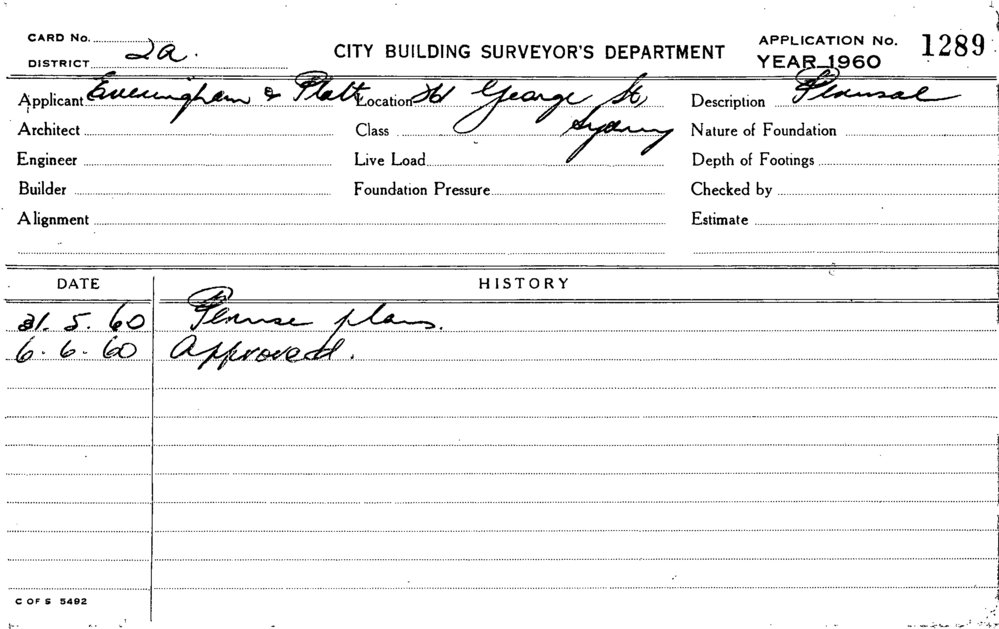 CARD No.
DISTRICT 2a.
CITY BUILDING SURVEYOR'S DEPARTMENT
APPLICATION No. 1289
YEAR 1960
Applicant Everingham & Platt Location George St, Sydney Description Perusal
Architect Class Nature of Foundation
Engineer Live Load Depth of Footings
Builder Foundation Pressure Checked by
Alignment Estimate
DATE HISTORY
31. 5. 60 Peruse plans.
6. 6. 60 Approved.
C OF S 5492